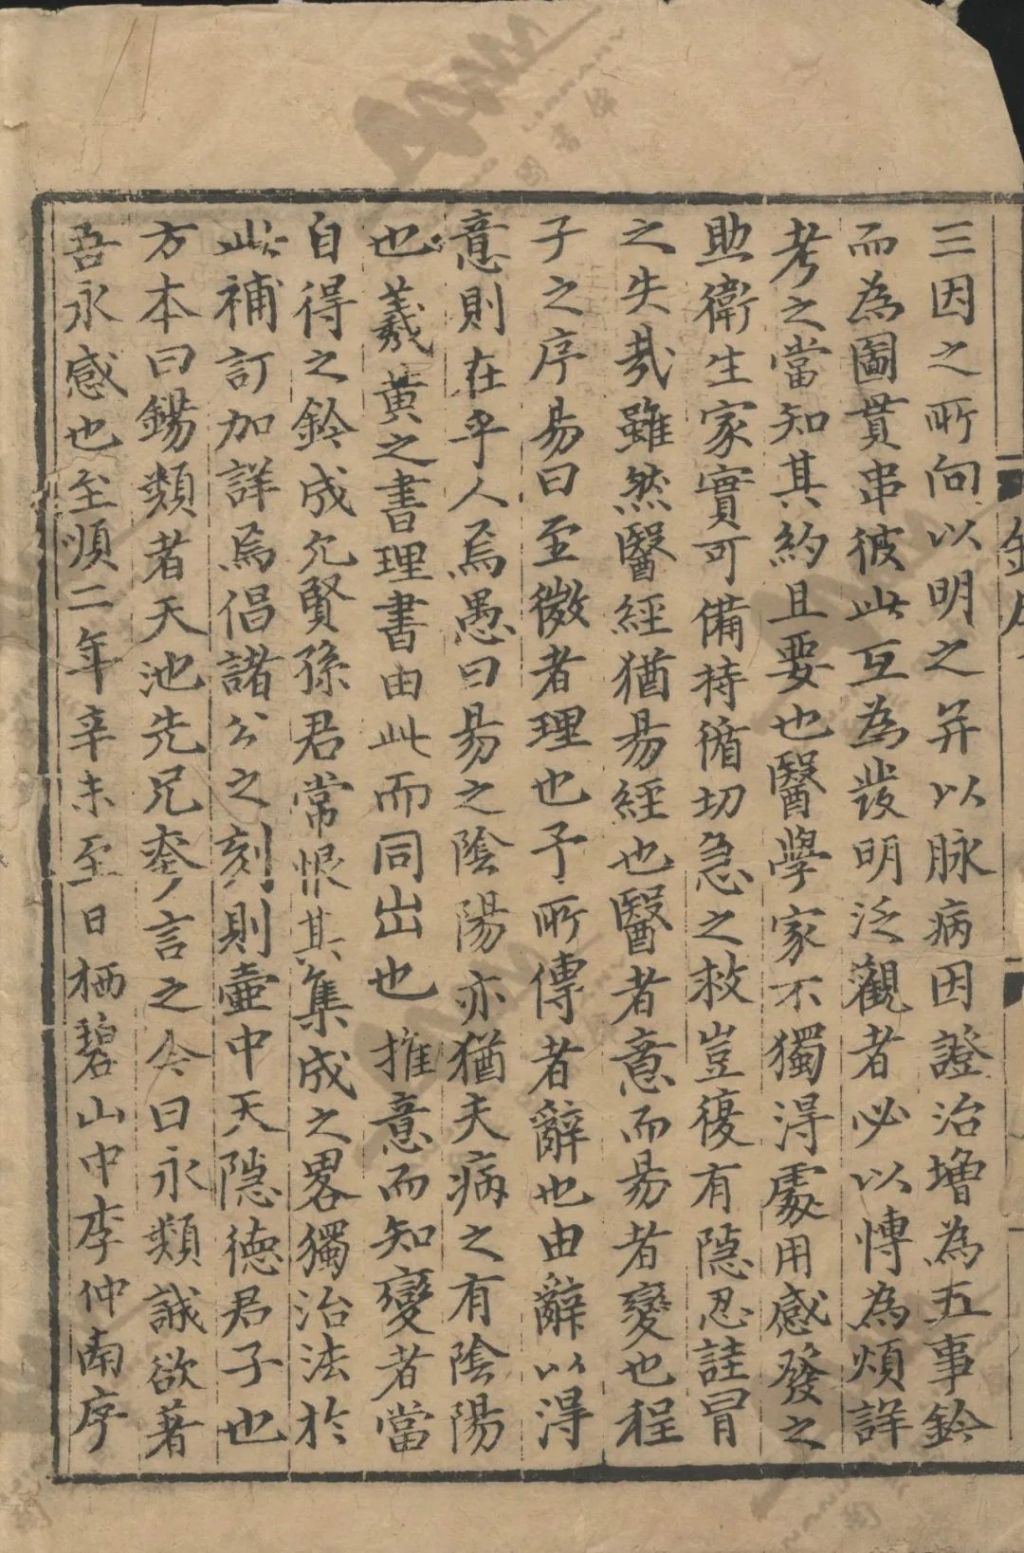 三因之所向以明之并以脉病因證治增為五事鈐
而為圖貫串彼此互為發明泛觀者必以慱為煩詳
考之當知其約且要也醫學家不獨淂處用感發之
助衛生家實可備持循切急之救豈復有隠忍詿冒
之失㢤雖然醫經猶昜經也醫者意而昜者變也程
子之序昜曰至微者理也予所傳者辭也由辭以淂
意則在乎人焉愚曰昜之陰陽亦猶夫病之有陰陽
也羲黄之書理書由此而同出也推意而知變者當
自得之鈐成允賢孫君常恨其集成之畧獨治法於
此補訂加詳焉倡諸公之刻則壷中天隠徳君子也
方本曰錫類者天池先兄奎言之今曰永類誠欲著
吾永感也至順二年辛未至日栖碧山中李仲南序